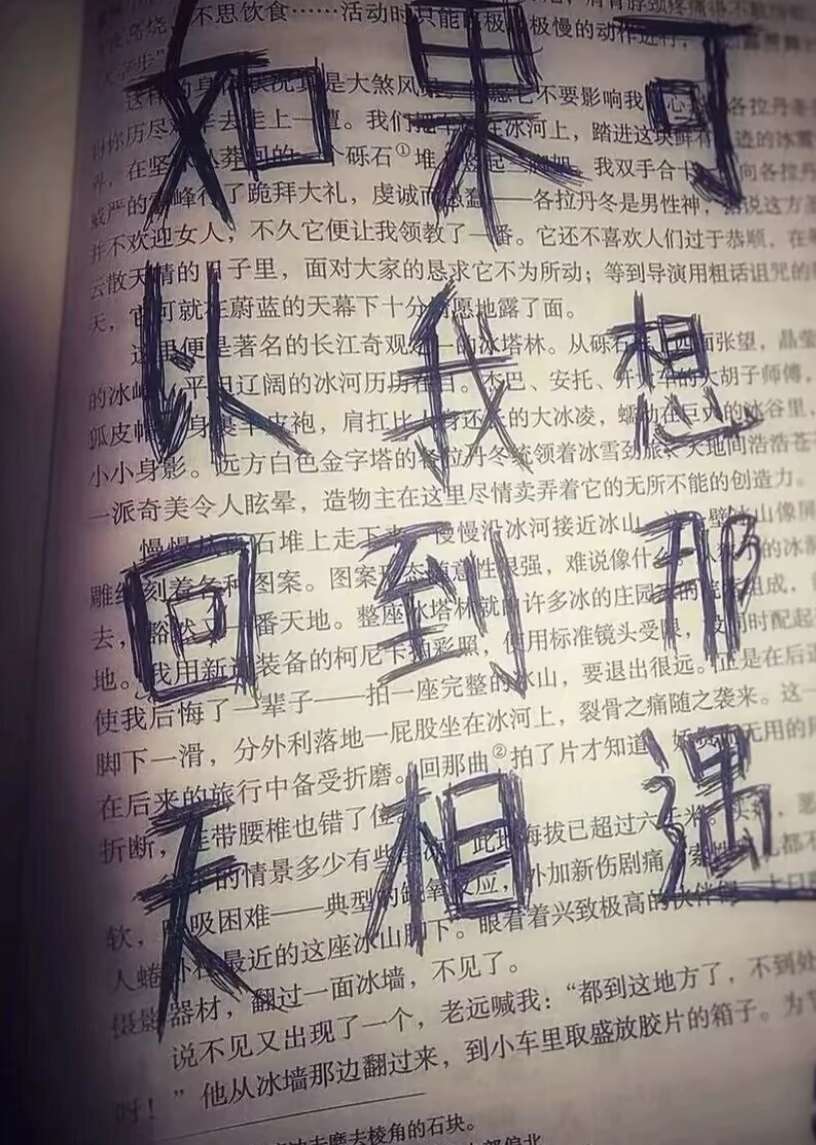 如果可
以我想
回到那
天相遇
不思饮食……活动时只能
是大煞风 不要影响我 各拉丹冬
你历尽 去走上一遭。我们把 在冰河上,踏进这块鲜有
在坚 砾石① 我双手合 向各拉丹
威严的 峰行了跪拜大礼,虔诚而愚蠢——各拉丹冬是男性神, 说这方
并不欢迎女人,不久它便让我领教了一番。它还不喜欢人们过于恭顺,在
云散天晴的日子里,面对大家的恳求它不为所动;等到导演用粗话诅咒的
天,它可就在蔚蓝的天幕下十分 愿地露了面。
这里便是著名的长江奇观之一的冰塔林。从砾石 四面张望,晶莹
的冰 平坦辽阔的冰河历历在目。杰巴、安托、开大车的大胡子师傅,
狐皮帽 身裹羊皮袍,肩扛比 身还长的大冰凌,蠕动在巨大的冰谷里,
小小身影。远方白色金字塔的各拉丹冬统领着冰雪劲旅,天地间浩浩苍
一派奇美令人眩晕,造物主在这里尽情卖弄着它的无所不能的创造力。
慢慢从 石堆上走下来,慢慢沿冰河接近冰山。 冰山像屏
雕 刻着各种图案。图案形态随意性很强,难说像什么。 的冰
去,豁然又一番天地。整座冰塔林就 许多冰的庄园 组成,
地。我用新 装备的柯尼卡拍彩照,使用标准镜头受限,
使我后悔了一辈子——拍一座完整的冰山,要退出很远。正是在后退
脚下一滑,分外利落地一屁股坐在冰河上,裂骨之痛随之袭来。这一
在后来的旅行中备受折磨。回那曲②拍了片才知道, 无用的
折断, 连带腰椎也错了位。
的情景多少有些 此地海拔已超过六千米。
软,呼吸困难——典型的缺氧反应,外加新伤剧痛, 都不
人蜷卧在最近的这座冰山脚下。眼看着兴致极高的伙伴
摄影器材,翻过一面冰墙,不见了。
说不见又出现了一个,老远喊我:“都到这地方了,不到处
时!”他从冰墙那边翻过来,到小车里取盛放胶片的箱子。为
磨去棱角的石块。
部偏北